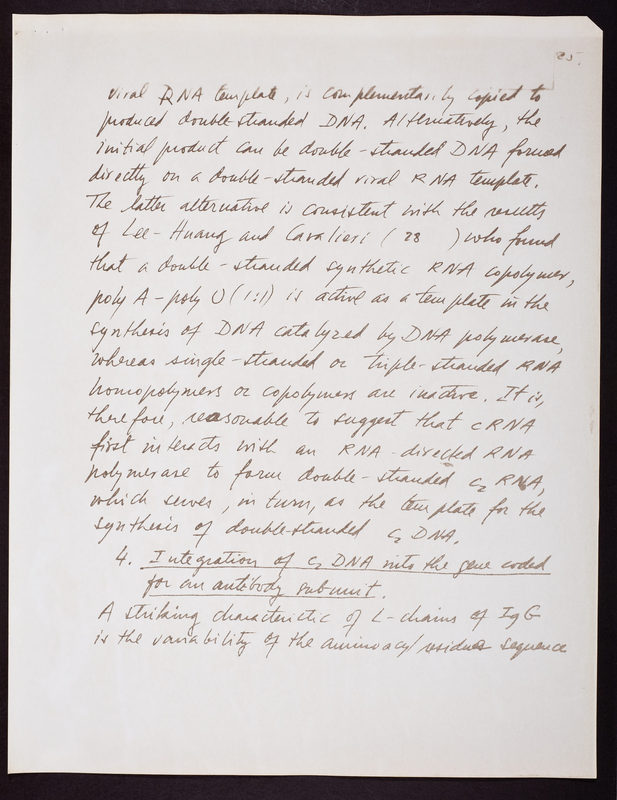 25.
viral RNA template, is complementarily copied to
produced double stranded DNA. Alternatively, the
initial product can be double-stranded DNA formed
directly on a double-stranded viral RNA template.
The latter alternative is consistent with the results
of Lee-Huang and Cavalieri ( 28 ) who found
that a double-stranded synthetic RNA copolymer,
poly A-poly U (1:1) is active as a template in the
synthesis of DNA catalyzed by DNA polymerase,
whereas single-stranded or triple-stranded RNA
homopolymers or copolymers are inactive. It is,
therefore, reasonable to suggest that cRNA
first interacts with an RNA-directed RNA
polymerase to form double-stranded c2 RNA,
which serves, in turn, as the template for the
synthesis of double-stranded c2 DNA.
4. Integration of c2 DNA into the gene coded
for an antibody subunit.
A striking characteristic of L-chains of IgG
is the variability of the aminoacyl residues sequence